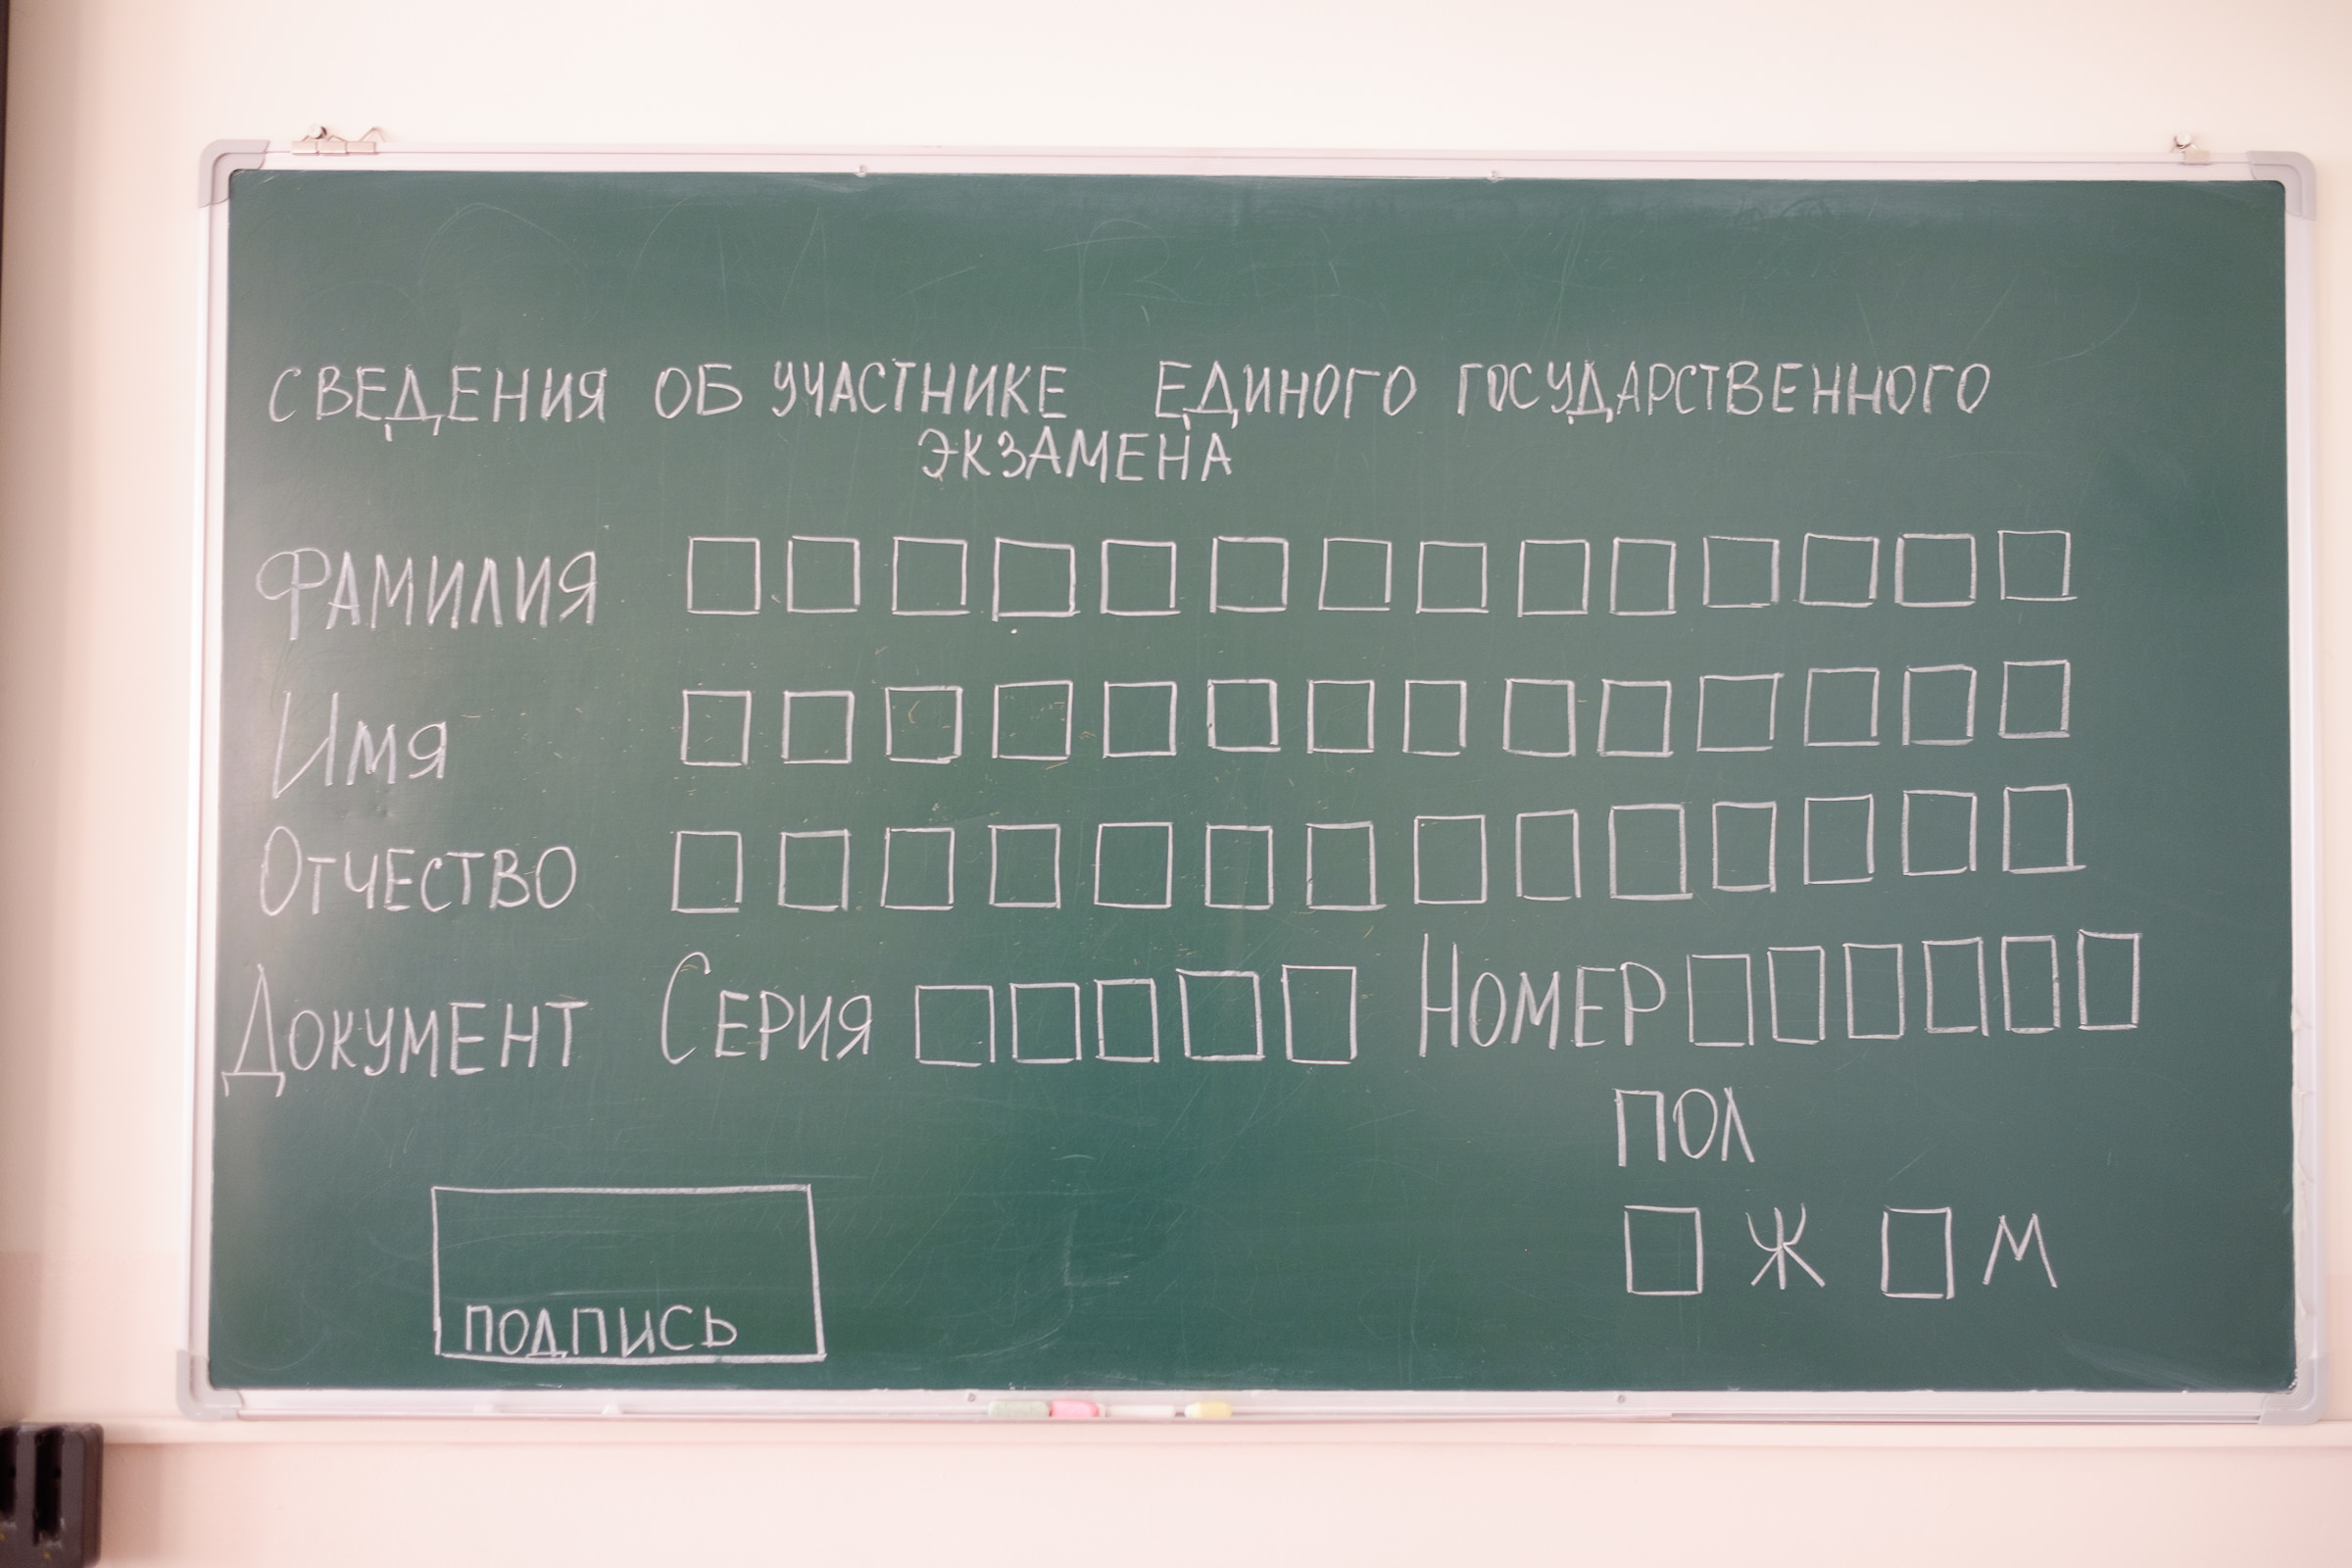 СВЕДЕНИЯ ОБ УЧАСТНИКЕ ЕДИНОГО ГОСУДАРСТВЕННОГО
ЭКЗАМЕНА
ФАМИЛИЯ
ИМЯ
ОТЧЕСТВО
ДОКУМЕНТ СЕРИЯ НОМЕР
ПОЛ
Ж М
ПОДПИСЬ